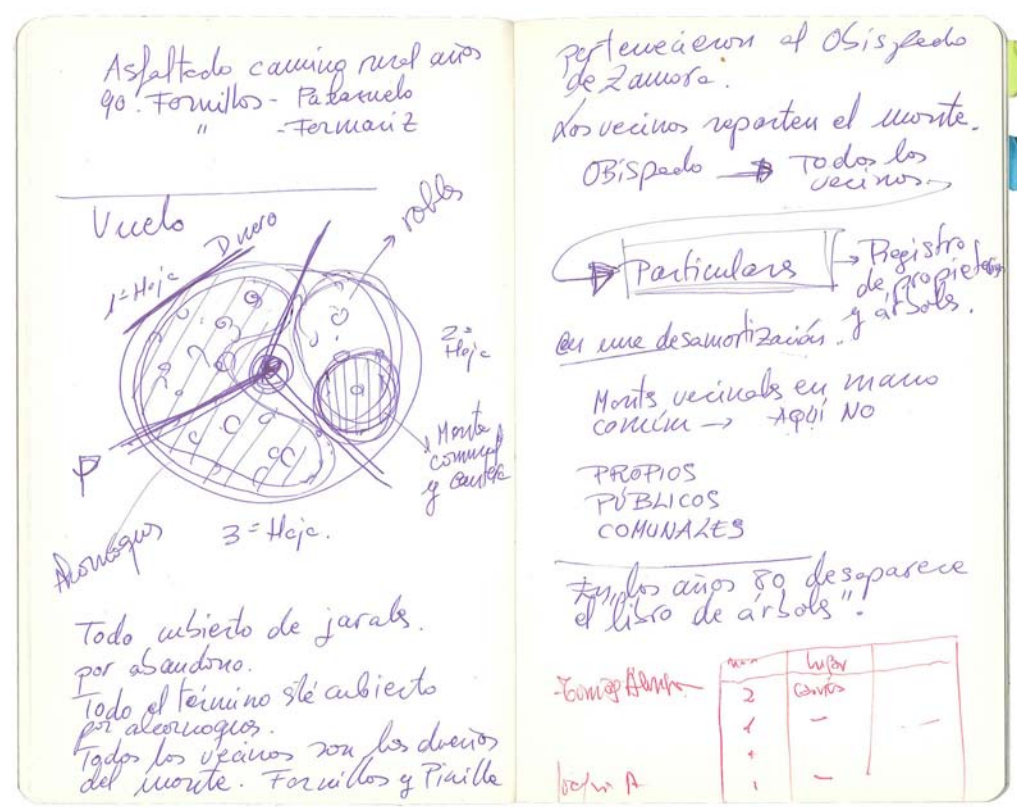 Asfaltado camino rural años
90. Fornillos - Palazuelo
" - Fermariz
Vuelo
Duero
robles
1ª Hoja
2ª
Hoja
Monte
comunal
y cantera
3ª Hoja.
Alcornoques
Todo cubierto de jarales.
por abandono.
Todo el término está cubierto
por alcornoques.
Todos los vecinos son los dueños
del monte. Fornillos y Pinilla
pertenecieron al Obispado
de Zamora.
Los vecinos reparten el monte.
OBISPado → Todos los
vecinos
Particulares → Registro
de propietarios
y árboles.
en una desamortización.
Montes vecinales en mano
común → AQUÍ NO
PROPIOS
PÚBLICOS
COMUNALES
En los años 80 desaparece
el "libro de árboles".
lugar
Tomás
2
1